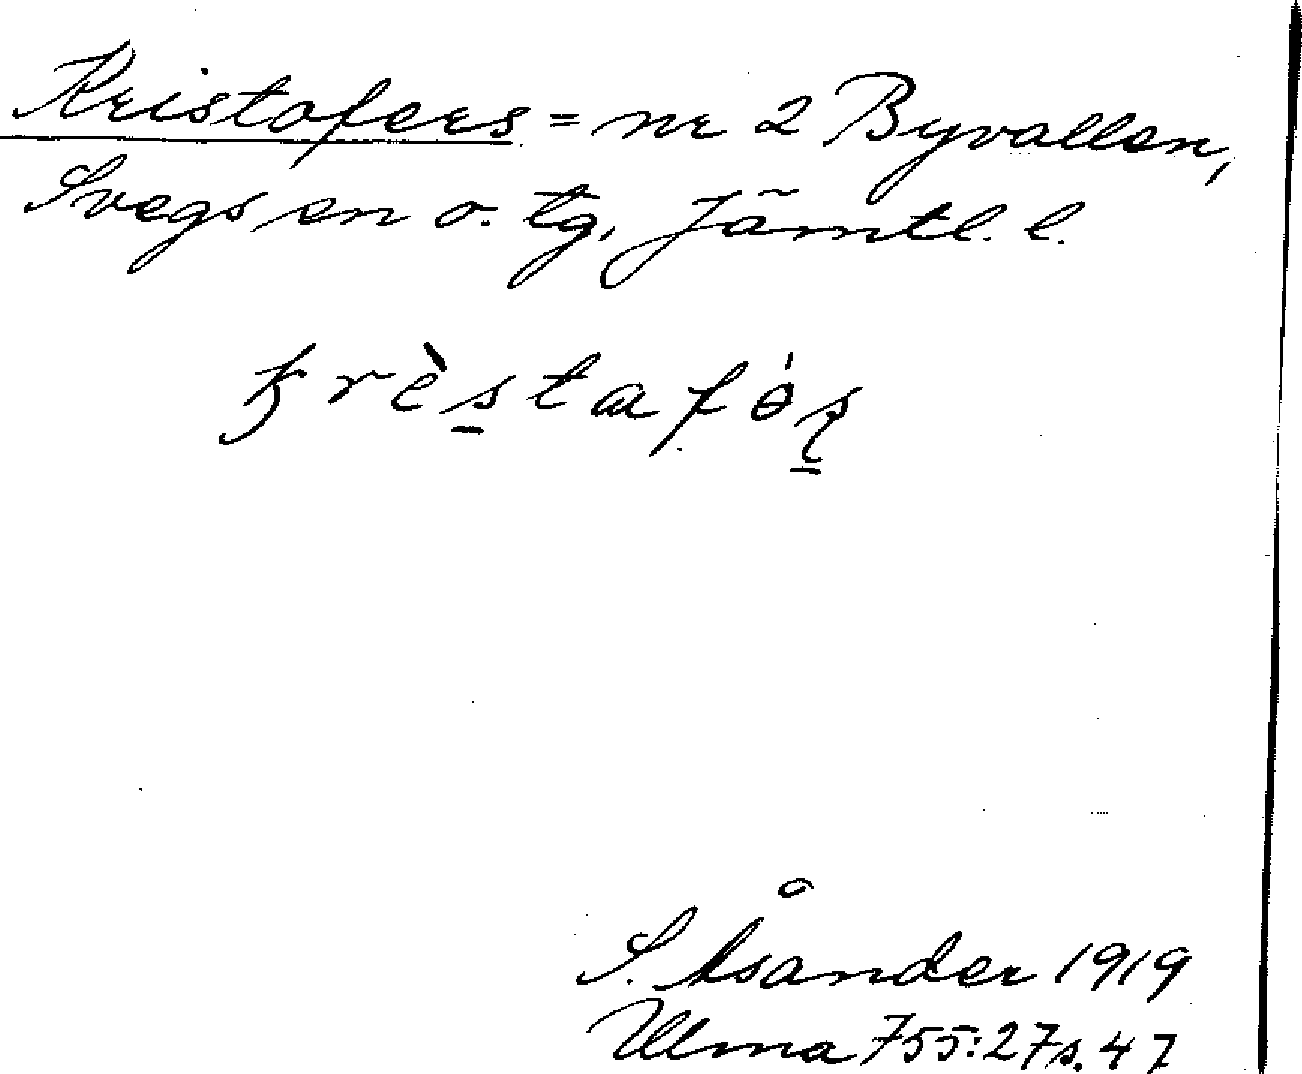 Kristofers = nr 2 Byvallen,
Svegs sn o. tg, Jämtl. l.
krèstafǿs
S. Åsander 1919
Ulma 755:27 s. 47